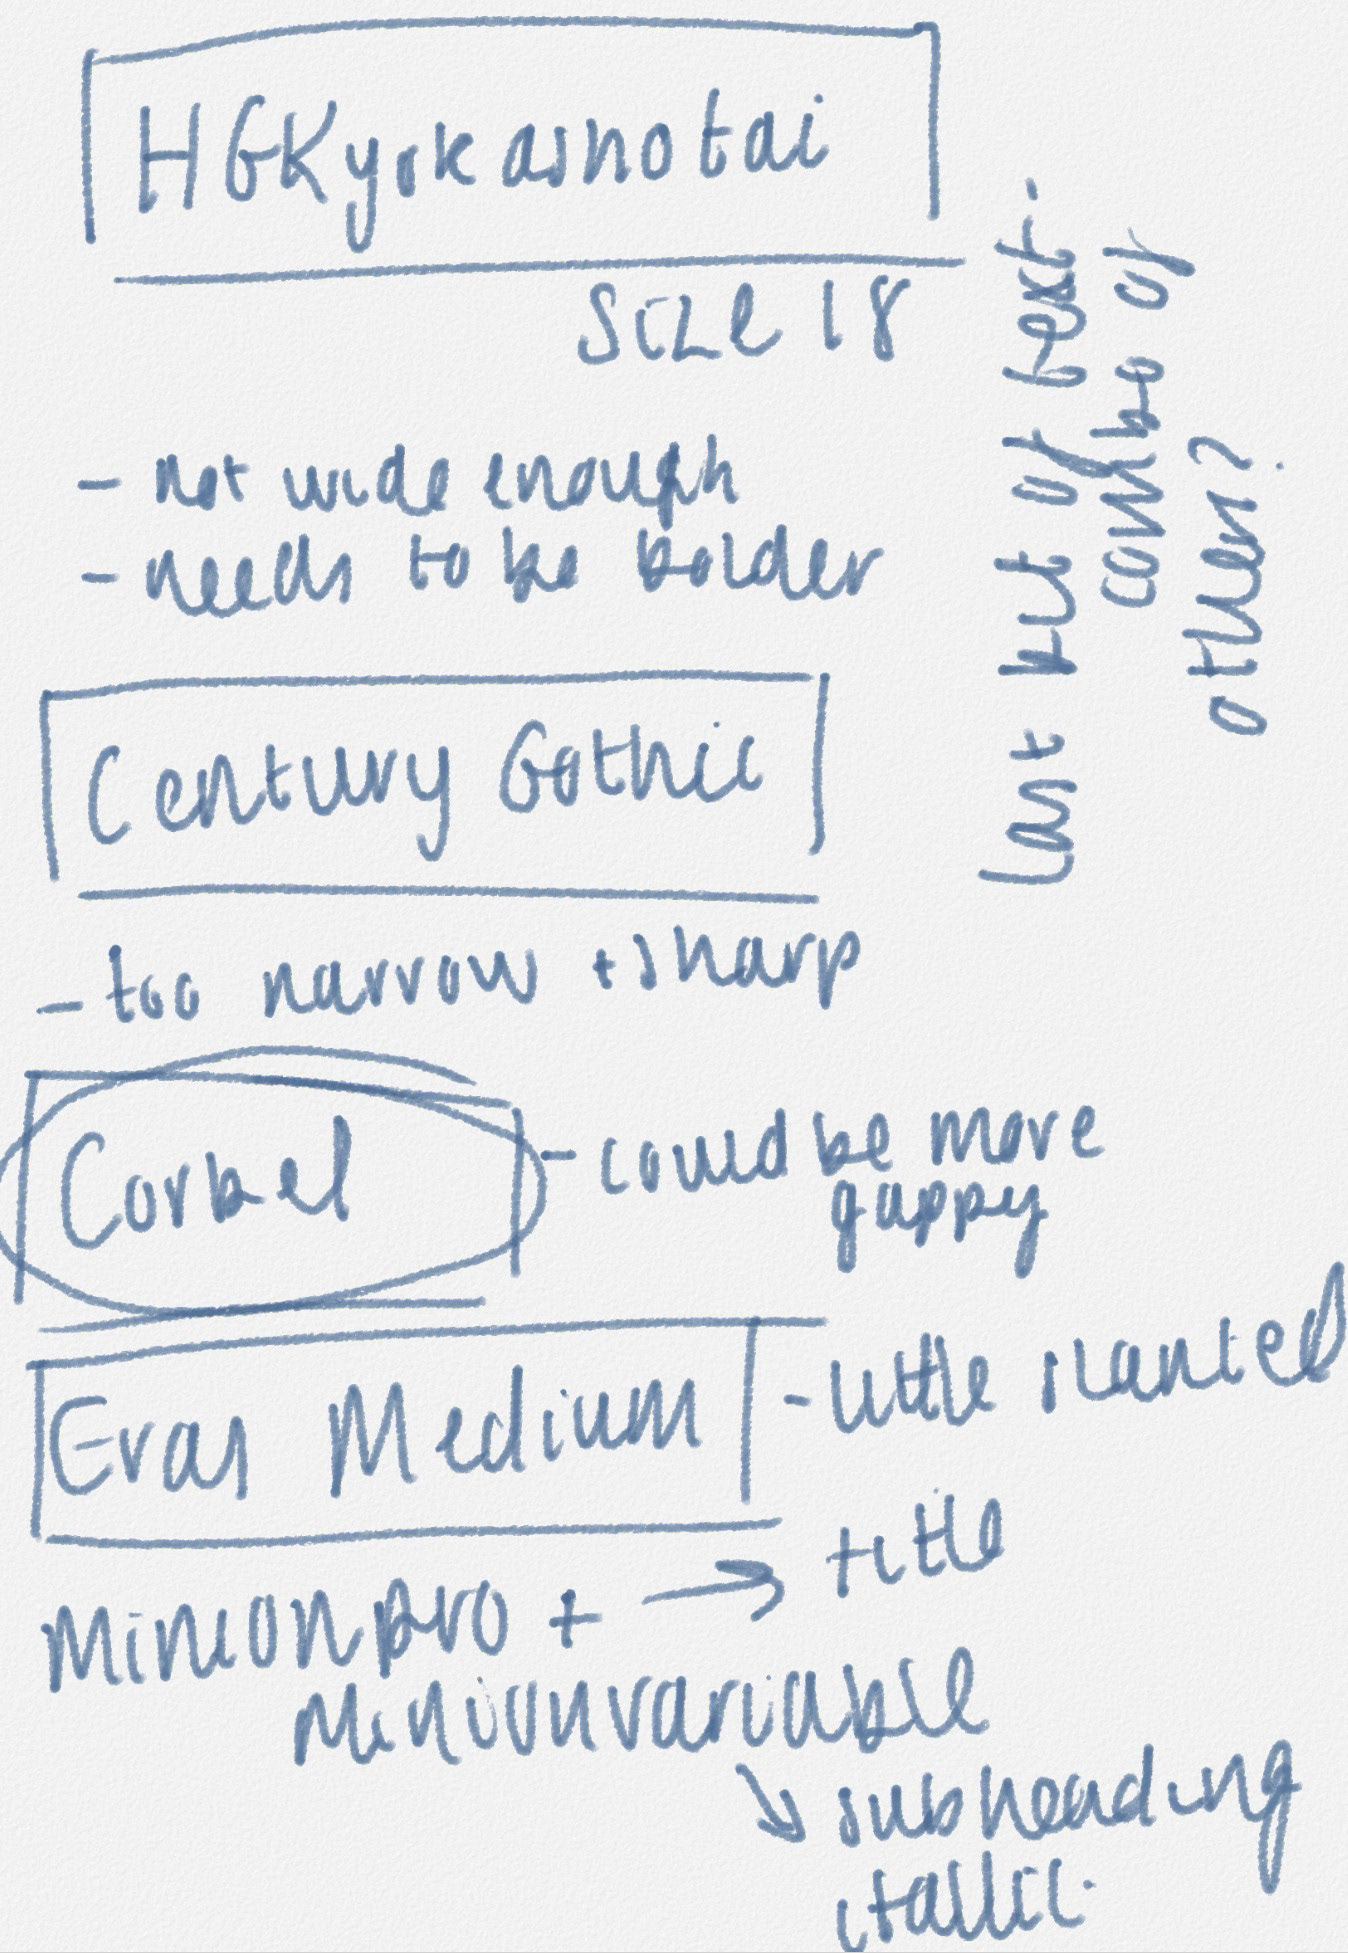 HGKyokasnotai
Size 18
- not wide enough
- needs to be bolder
last bit of text.
combo of
other?
Century Gothic
- too narrow + sharp
Corbel
- could be more
gappy
Eras Medium
- little slanted
Minionpro + → title
Minionvariable
↘ subheading
itallic.